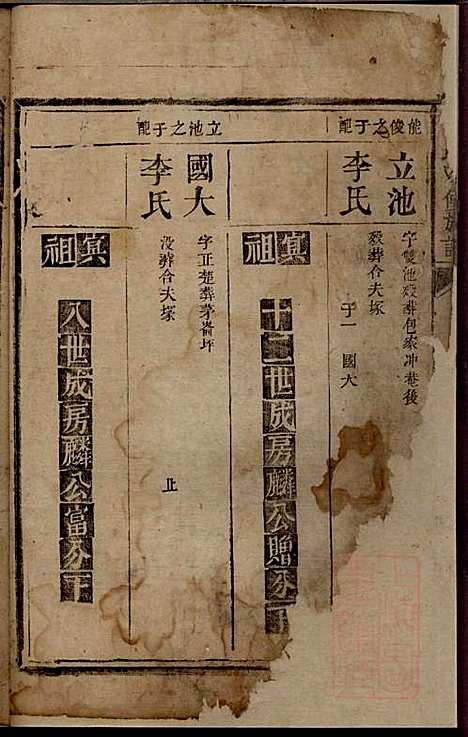 能俊之子配
立池
字雙池歿葬包家冲巷後
李氏
歿葬合夫塚
子一 國大
祖寘
十二世成房麟公贈分下
立池之子配
國大
字正楚葬茅崙坪
李氏
沒葬合夫塚
止
祖寘
八世成房麟公富分下